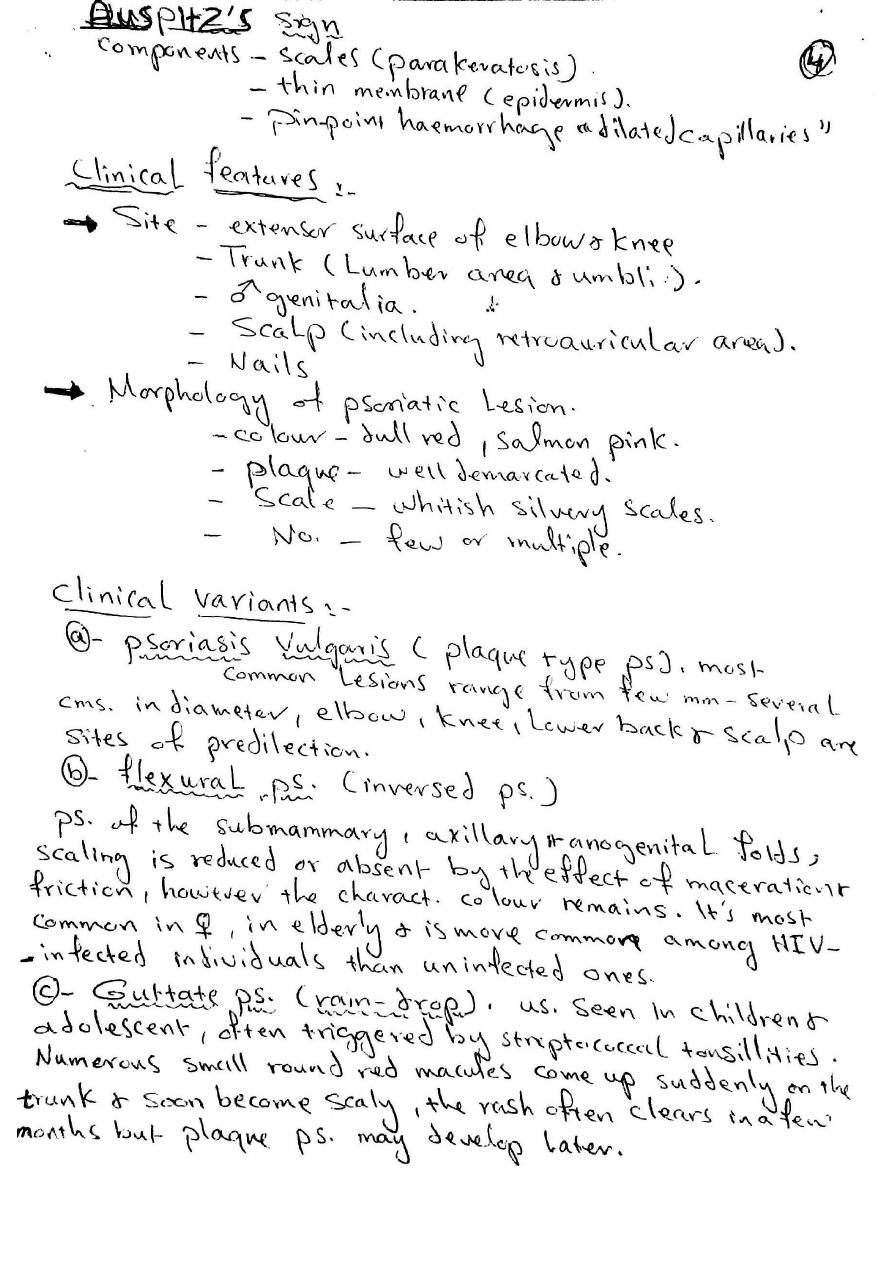 AUSPITZ'S Sign
components - scales (parakeratosis).
④
- thin membrane (epidermis).
- pin-point haemorrhage "dilated capillaries"
Clinical features :-
→ Site - extensor surface of elbow & knee
- Trunk (Lumber area & umbli.).
- ♂ genitalia.
- Scalp (including retroauricular area).
- Nails
→ Morphology of psoriatic Lesion.
- colour - dull red, salmon pink.
- plaque - well demarcated.
- Scale - whitish silvery scales.
- No. - few or multiple.
Clinical variants :-
ⓐ- psoriasis Vulgaris ( plaque type ps). most
common Lesions range from few mm - several
cms. in diameter, elbow, knee, Lower back & scalp are
sites of predilection.
ⓑ- flexural ps. (inversed ps.)
ps. of the submammary, axillary & anogenital folds,
scaling is reduced or absent by the effect of maceration &
friction, however the charact. colour remains. It's most
common in ♀, in elderly & is more common among HIV-
-infected individuals than uninfected ones.
ⓒ- Guttate ps. (rain-drop). us. seen in children &
adolescent, often triggered by streptococcal tonsillities.
Numerous small round red macules come up suddenly on the
trunk & soon become scaly, the rash often clears in a few
months but plaque ps. may develop later.